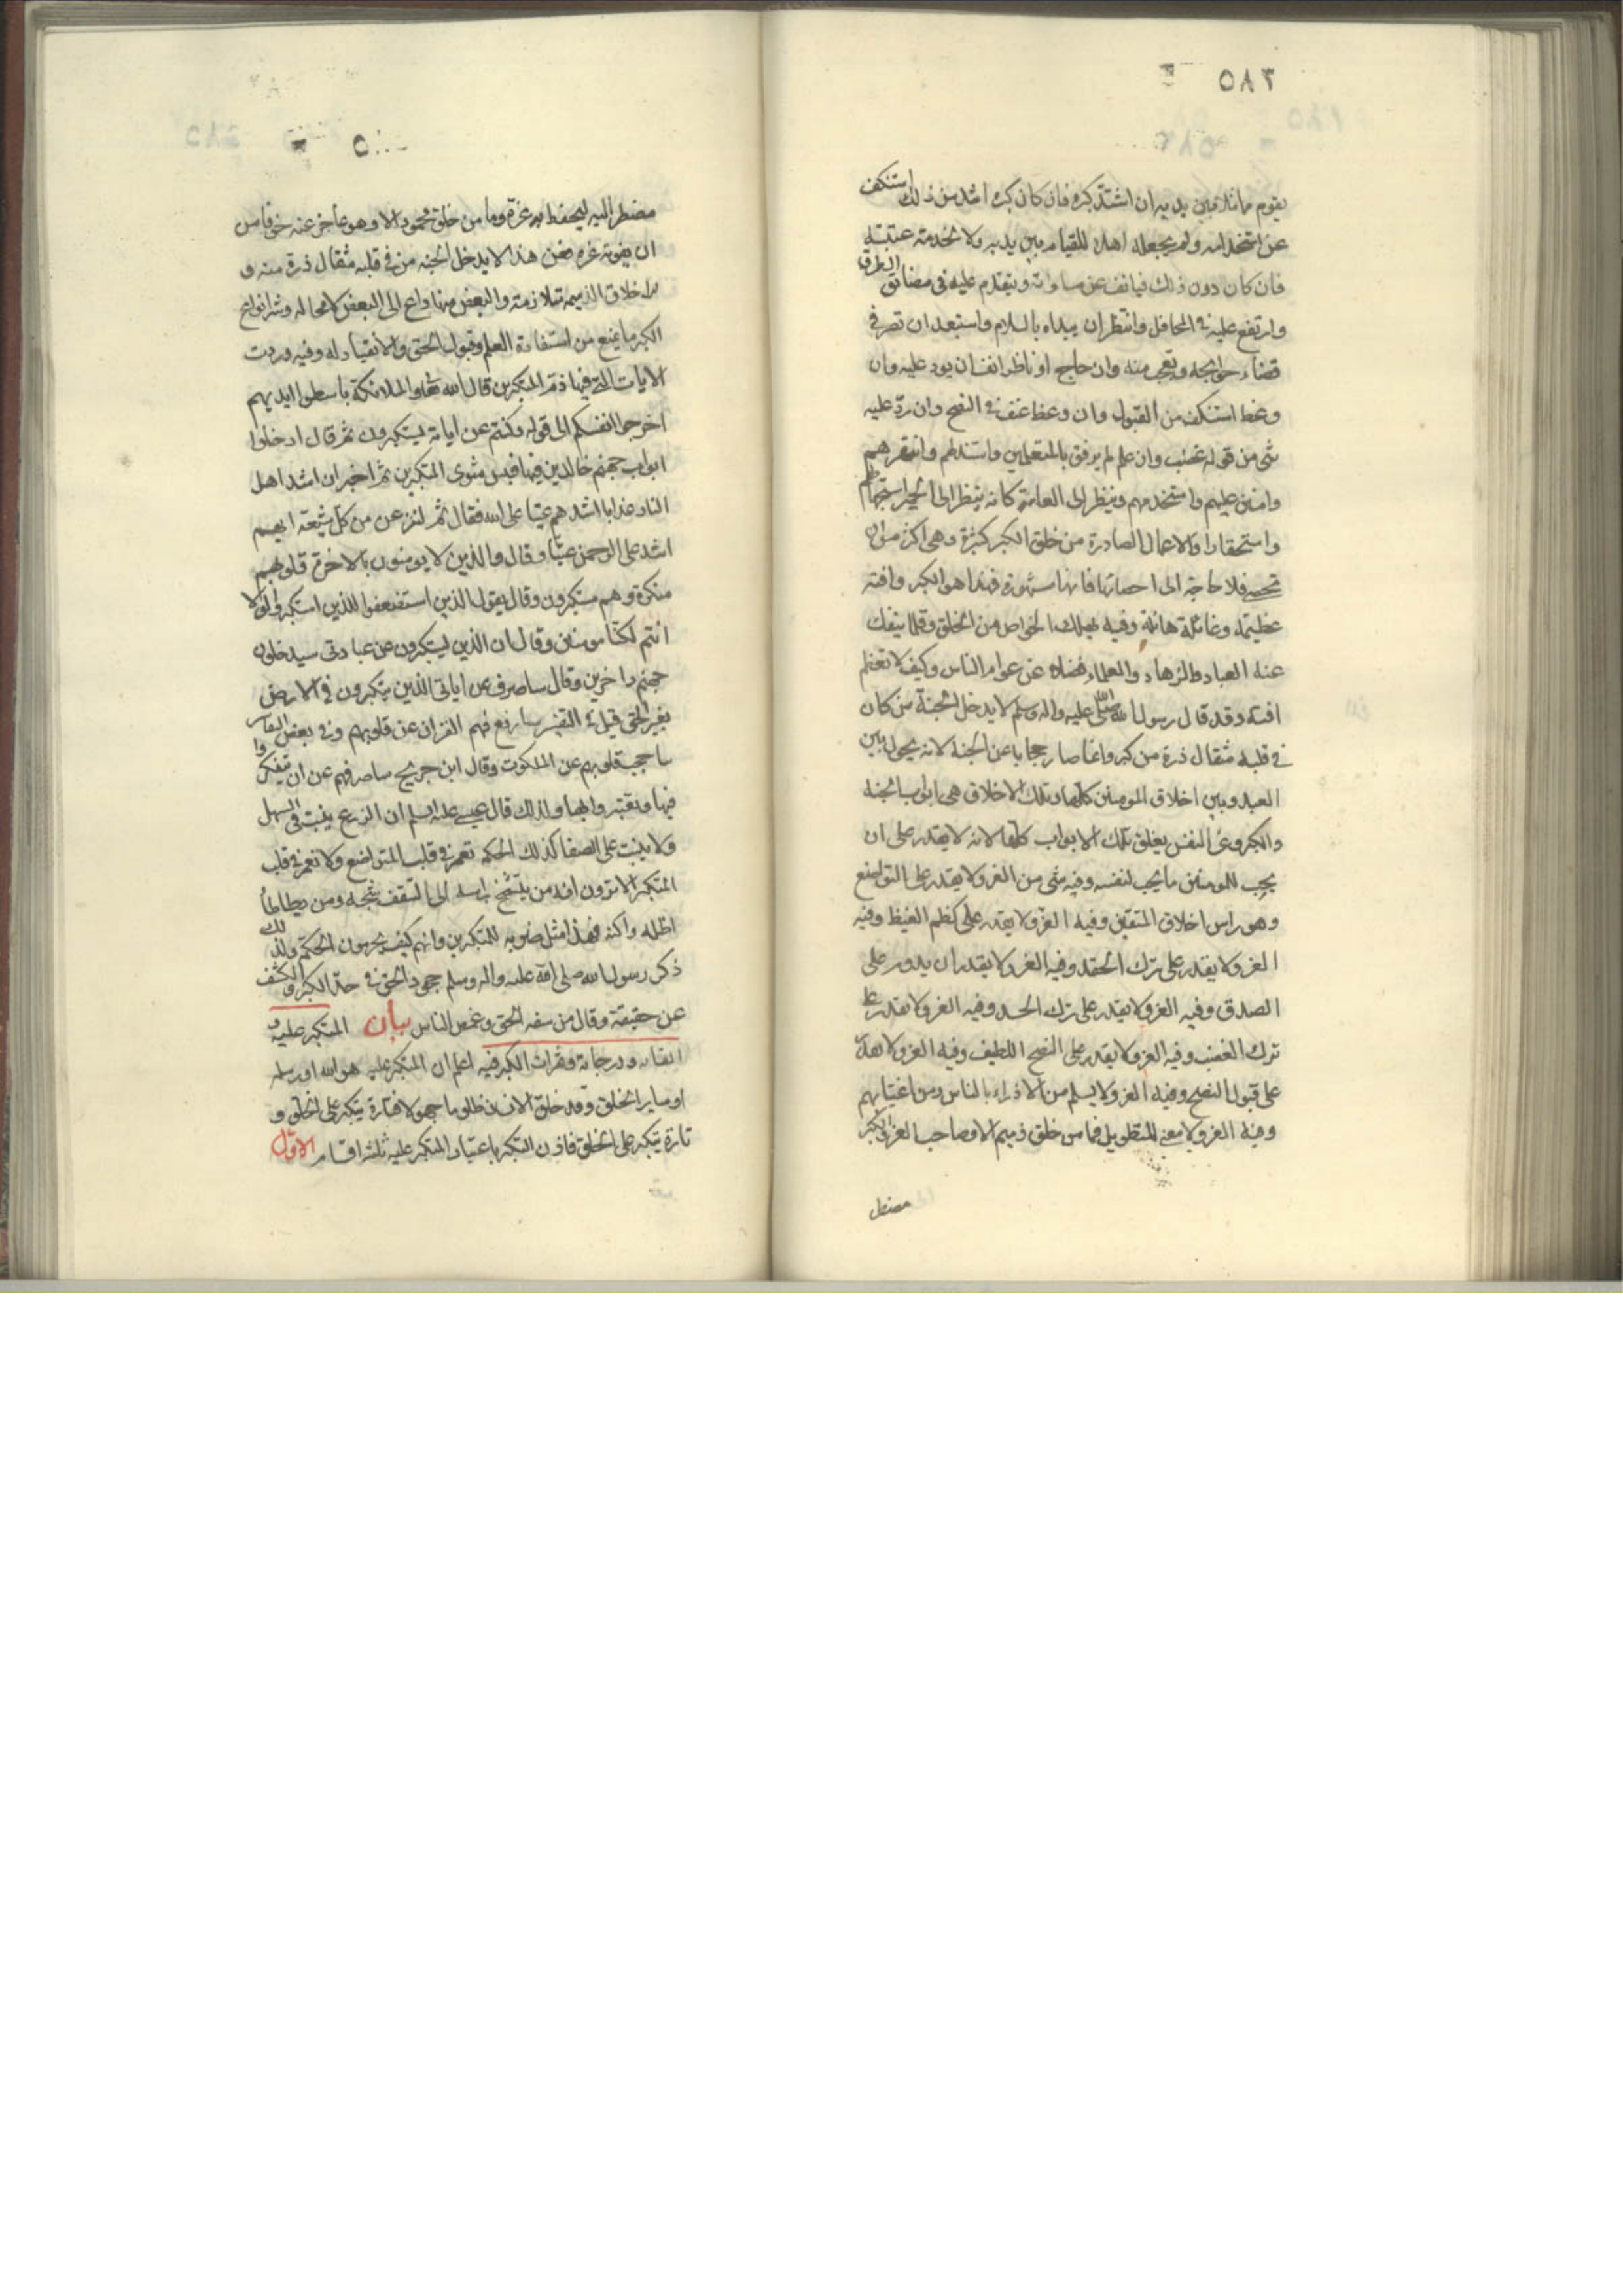 ٥٨٣
يقوم ماثلا بين يديه ان اشتد كبره فان كان كبره اشد من ذلك استنكف
عن استخدامه ولم يجعله اهلا للقيام بين يديه ولا بخدمة عتبته
فان كان دون ذلك فيانف عن مساواته ويتقدم عليه في مضائق الطرق
وارتفع عليه في المحافل وانتظر ان يبداه بالسلام واستبعد ان تصر في
قضاء حوائجه وتعجب منه وان حاج او ناظر انف ان يرد عليه وان
وعظ استنكف من القبول وان وعظ عنف في النصح وان رد عليه
شي من قوله غضب وان علم لم يرفق بالمتعلمين واستذلهم وانتهرهم
وامتن عليهم واستخدمهم وينظر الى العامة كانه ينظر الى الحمير استجهالا لهم
واستحقارا والاعمال الصادرة من خلق الكبر كثيرة وهي اكثر من ان
تحصى فلا حاجة الى احصائها فانها مشهورة فهذا هو الكبر وافته
عظيمة وغائلته هائلة وفيه يهلك الخواص من الخلق وقلما ينفك
عنه العباد والزهاد والعلماء فضلا عن عوام الناس وكيف لا تعظم
افته وقد قال رسول الله صلى الله عليه واله وسلم لا يدخل الجنة من كان
في قلبه مثقال ذرة من كبر وانما صار حجابا عن الجنة لانه يحول بين
العبد وبين اخلاق المومنين كلها وتلك الاخلاق هي ابواب الجنة
والكبر وعز النفس يغلق تلك الابواب كلها لانه لا يقدر على ان
يحب للمومنين ما يحب لنفسه وفيه شي من العز ولا يقدر على التواضع
وهو راس اخلاق المتقين وفيه العز ولا يقدر على كظم الغيظ وفيه
العز ولا يقدر على ترك الحقد وفيه العز ولا يقدر ان يدور على
الصدق وفيه العز ولا يقدر على ترك الحسد وفيه العز ولا يقدر على
ترك الغضب وفيه العز ولا يقدر على النصح اللطيف وفيه العز ولا يقدر
على قبول النصح وفيه العز ولا يسلم من الازراء بالناس ومن اغتيابهم
وفيه العز ولا معنى للتطويل فما من خلق ذميم الا وصاحب العز والكبر
مضطر
مضطر اليه ليحفظ به عزه وما من خلق محمود الا وهو عاجز عنه خوفا من
ان يفوته عزه فمن هذا لا يدخل الجنه من في قلبه مثقال ذرة منه و
الاخلاق الذميمه متلازمة والبعض منها داع الى البعض لا محاله وشر انواع
الكبر ما يمنع من استفادة العلم وقبول الحق والانقياد له وفيه وردت
الايات التي فيها ذم المتكبرين قال الله تعالى والملائكة باسطوا ايديهم
اخرجوا انفسكم الى قوله وكنتم عن اياته يستكبرون ثم قال ادخلوا
ابواب جهنم خالدين فيها فبئس مثوى المتكبرين ثم اخبر ان اشد اهل
النار عذابا اشدهم عتيا على الله فقال ثم لننزعن من كل شيعة ايهم
اشد على الرحمن عتيا وقال والذين لا يومنون بالاخرة قلوبهم
منكرة وهم مستكبرون وقال يقول الذين استضعفوا للذين استكبروا لولا
انتم لكنا مومنين وقال ان الذين يستكبرون عن عبادتي سيدخلون
جهنم داخرين وقال ساصرف عن اياتي الذين يتكبرون في الارض
بغير الحق قيل في التفسير سارفع فهم القران عن قلوبهم وفي بعض التفاسير
ساحجب قلوبهم عن الملكوت وقال ابن جريج ساصرفهم عن ان يتفكروا
فيها ويعتبروا بها ولذلك قال عيسى عليه السلم ان الزرع ينبت في السهل
ولا ينبت على الصفا كذلك الحكمه تعمر في قلب المتواضع ولا تعمر في قلب
المتكبر الا ترون انه من يتشمخ براسه الى السقف شجه ومن يطاطأ
اظله واكنه فهذا مثل ضربه للمتكبرين وانهم كيف يحرمون الحكمة ولذلك
ذكر رسول الله صلى الله عليه واله وسلم جحود الحق في حد الكبر والكشف
عن حقيقته وقال من سفه الحق وغمص الناس بيان المتكبر عليه و
اقسامه ودرجاته وثمرات الكبر فيه اعلم ان المتكبر عليه هو الله او رسله
او ساير الخلق وقد خلق الانسان ظلوما جهولا فتارة يتكبر على الخلق و
تارة يتكبر على الخلق فاذن التكبر باعتبار المتكبر عليه ثلثة اقسام الاول